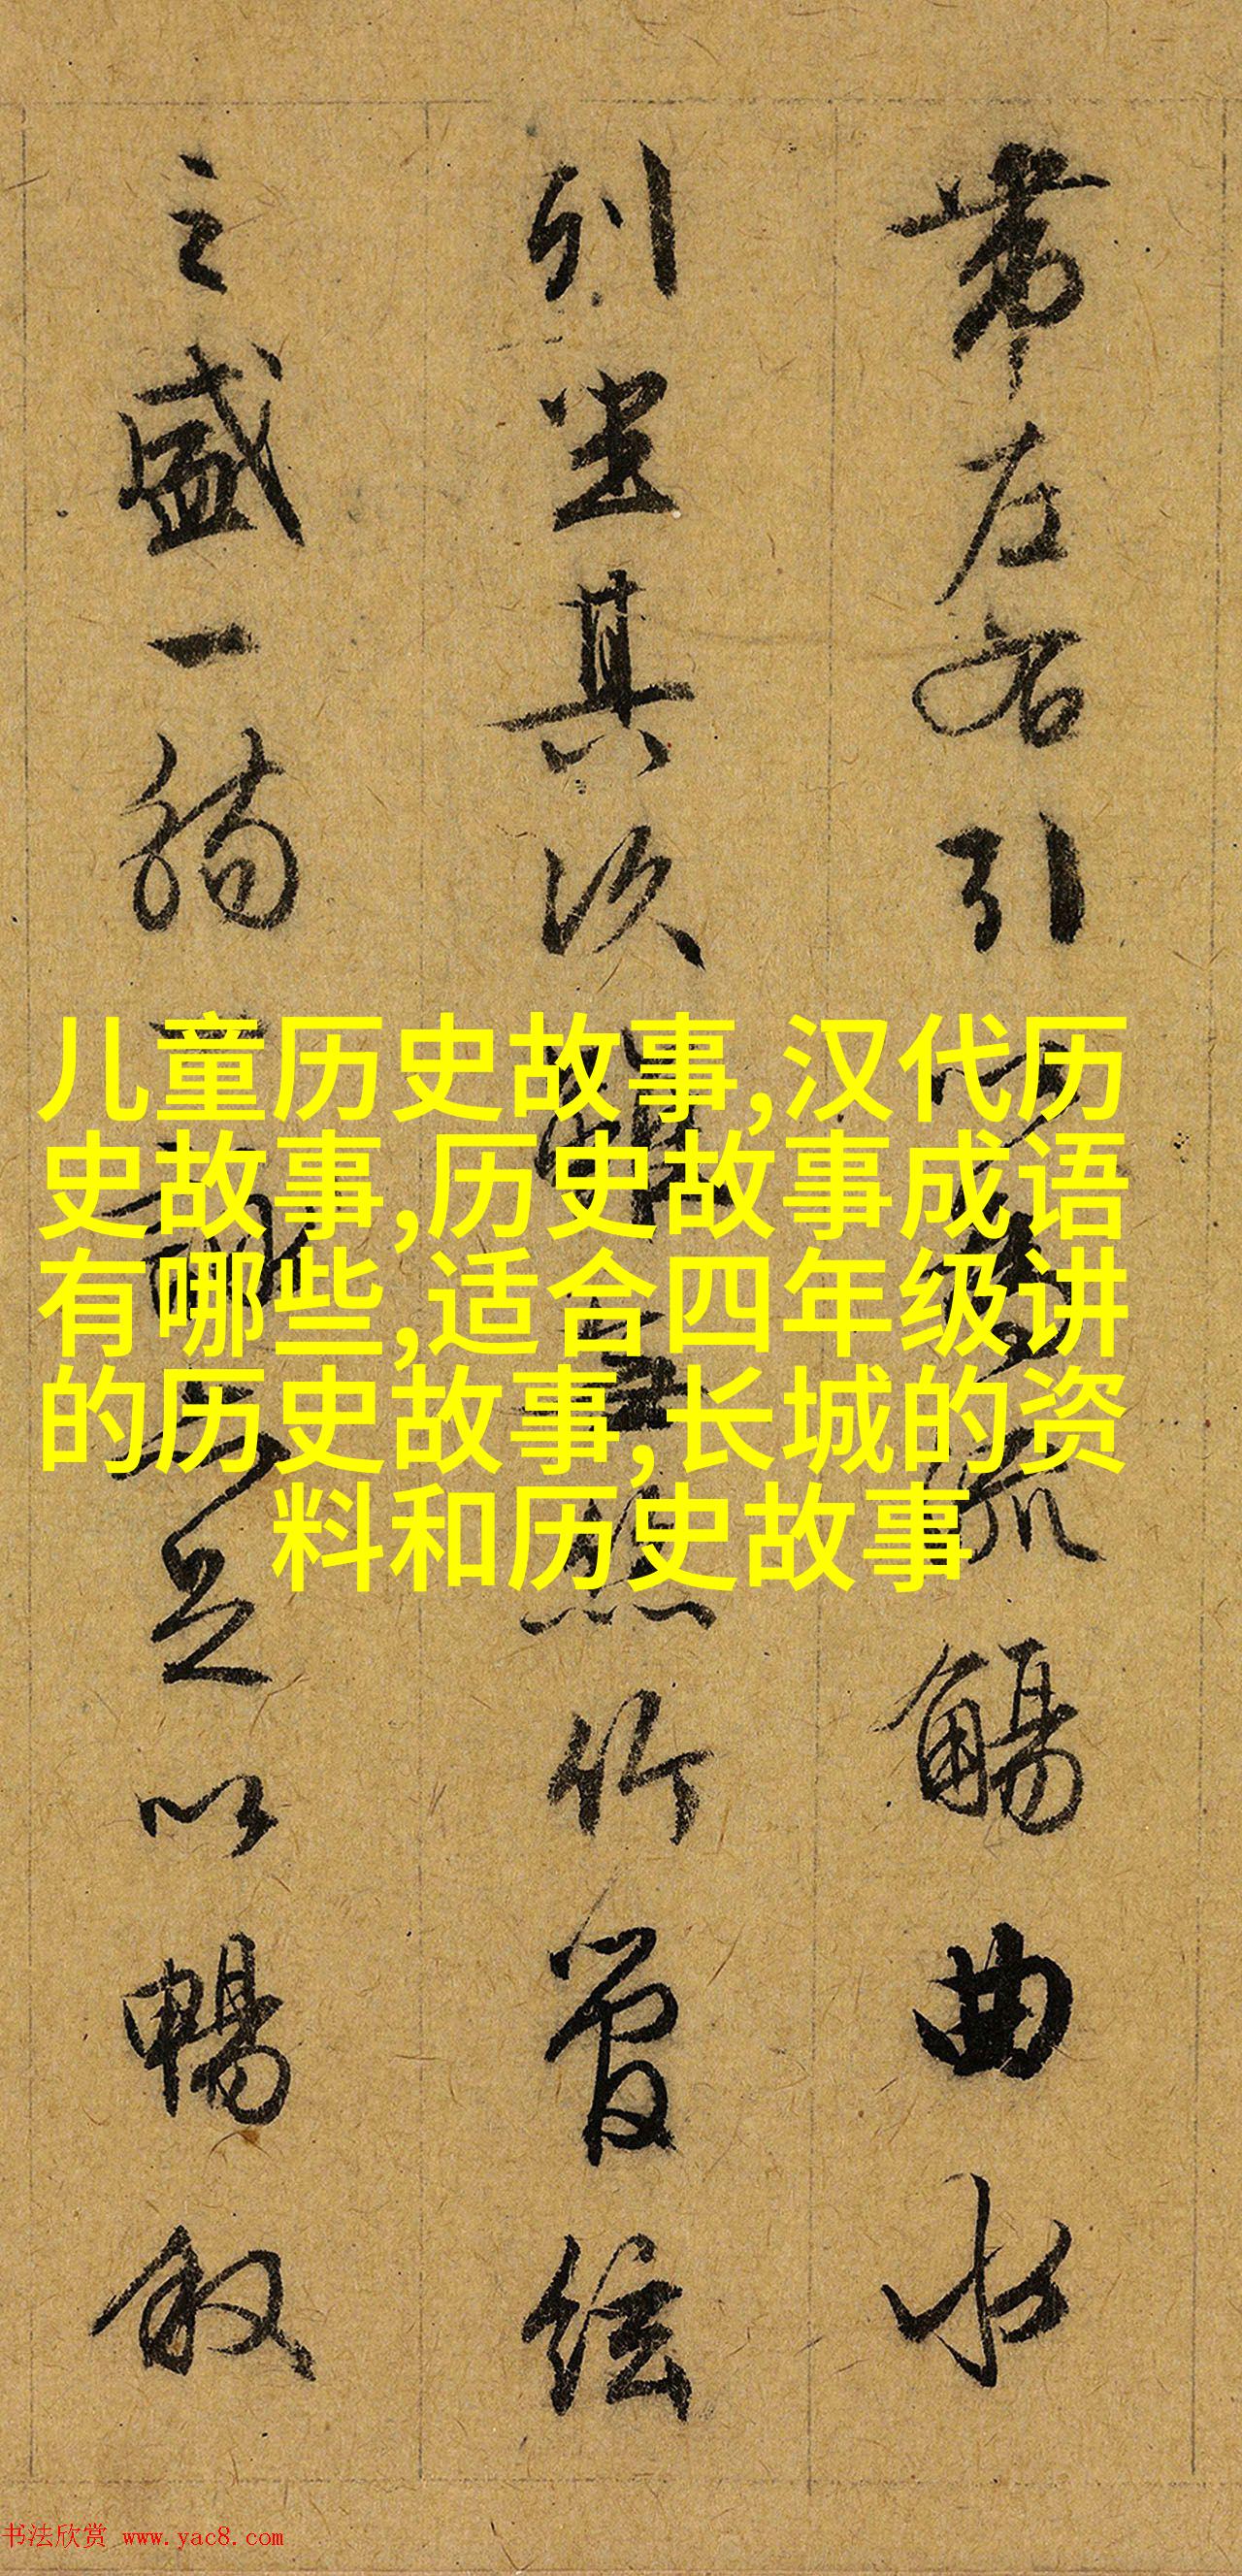 帶左右引流觴曲水
列坐其次竹管絃
之盛一觴足以暢叙
儿童历史故事,汉代历
史故事,历史故事成语
有哪些,适合四年级讲
的历史故事,长城的资
料和历史故事
书法欣赏 www.yac8.com